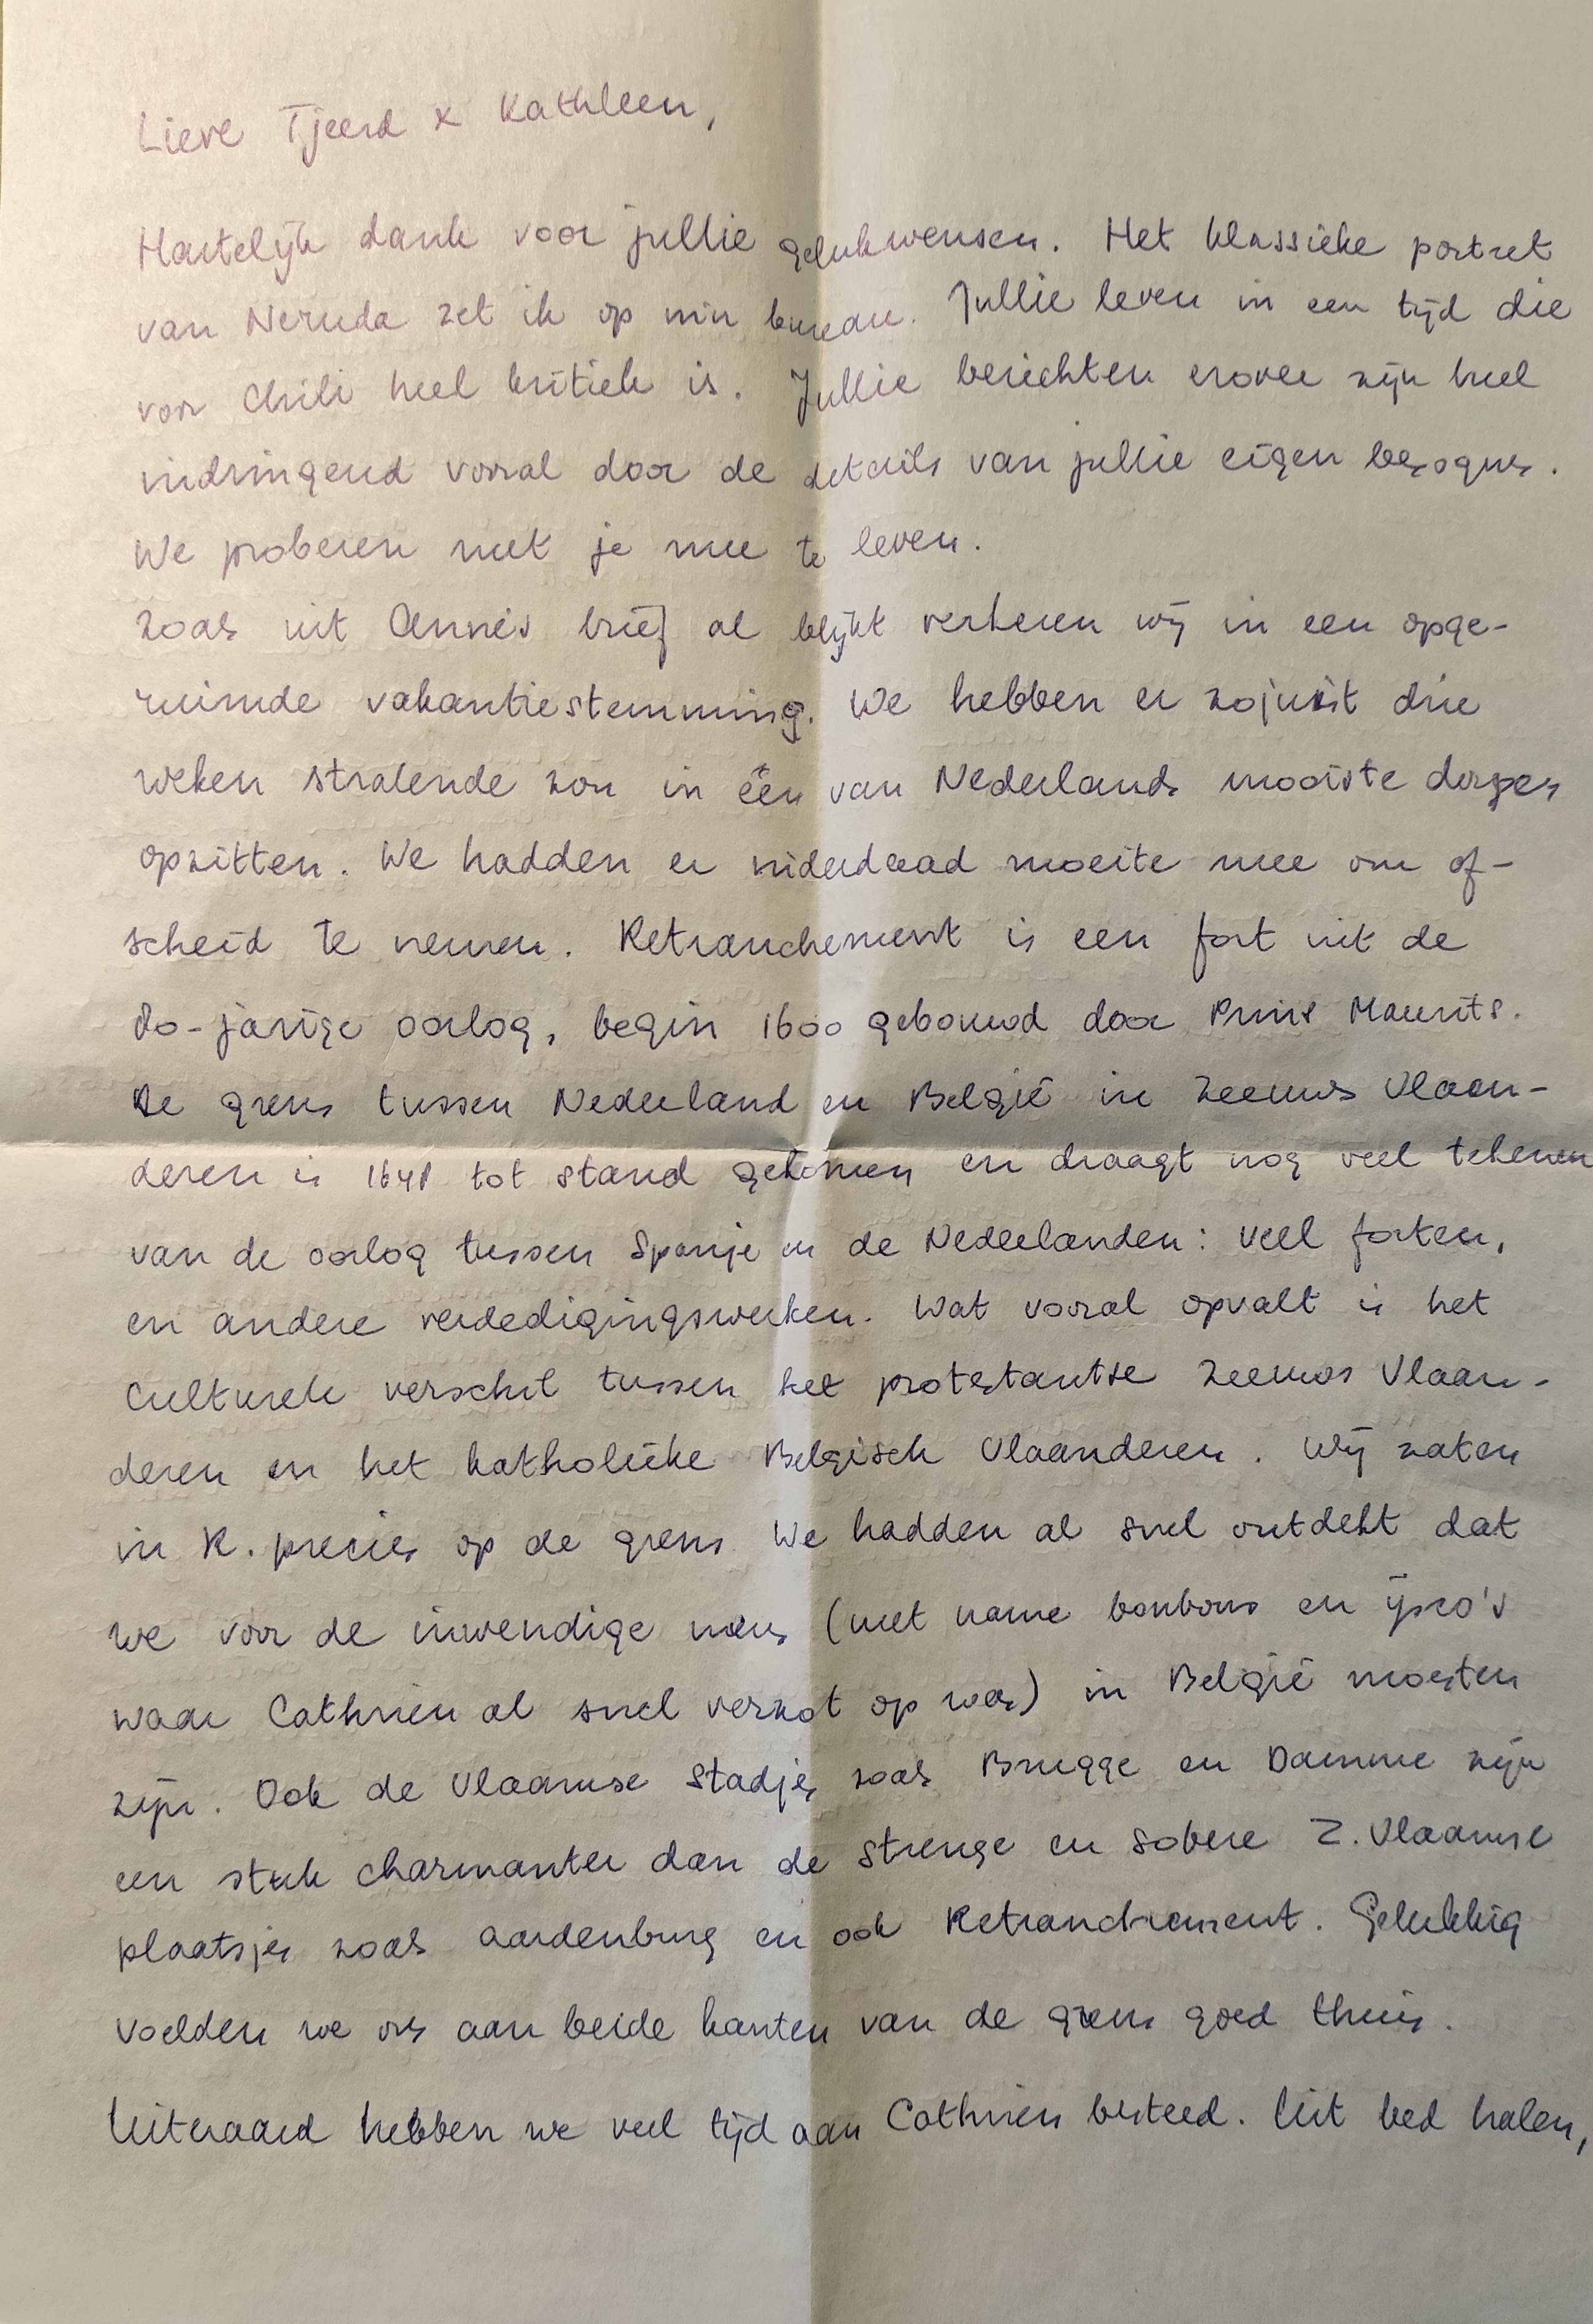 Lieve Tjeerd & Kathleen,
Hartelijk dank voor jullie gelukwensen. Het klassieke portret
van Neruda zet ik op mijn bureau. Jullie leven in een tijd die
voor Chili heel kritiek is. Jullie berichten erover zijn heel
indringend vooral door de details van jullie eigen besognes.
We proberen met je mee te leven.
Zoals uit Anne's brief al blijkt verkeren wij in een opge-
ruimde vakantiestemming. We hebben er zojuist drie
weken stralende zon in één van Nederlands mooiste dorpen
opzitten. We hadden er inderdaad moeite mee om af-
scheid te nemen. Retranchement is een fort uit de
80-jarige oorlog, begin 1600 gebouwd door Prins Maurits.
De grens tussen Nederland en België in Zeeuws Vlaan-
deren is 1648 tot stand gekomen en draagt nog veel tekenen
van de oorlog tussen Spanje en de Nederlanden: veel forten,
en andere verdedigingswerken. Wat vooral opvalt is het
culturele verschil tussen het protestantse Zeeuws Vlaan-
deren en het katholieke Belgisch Vlaanderen. Wij zaten
in R. precies op de grens. We hadden al snel ontdekt dat
we voor de inwendige mens (met name bonbons en ijsco's
waar Cathrien al snel verzot op was) in België moesten
zijn. Ook de Vlaamse stadjes zoals Brugge en Damme zijn
een stuk charmanter dan de strenge en sobere Z. Vlaamse
plaatsjes zoals Aardenburg en ook Retranchement. Gelukkig
voelden we ons aan beide kanten van de grens goed thuis.
Uiteraard hebben we veel tijd aan Cathrien besteed. Uit bed halen,